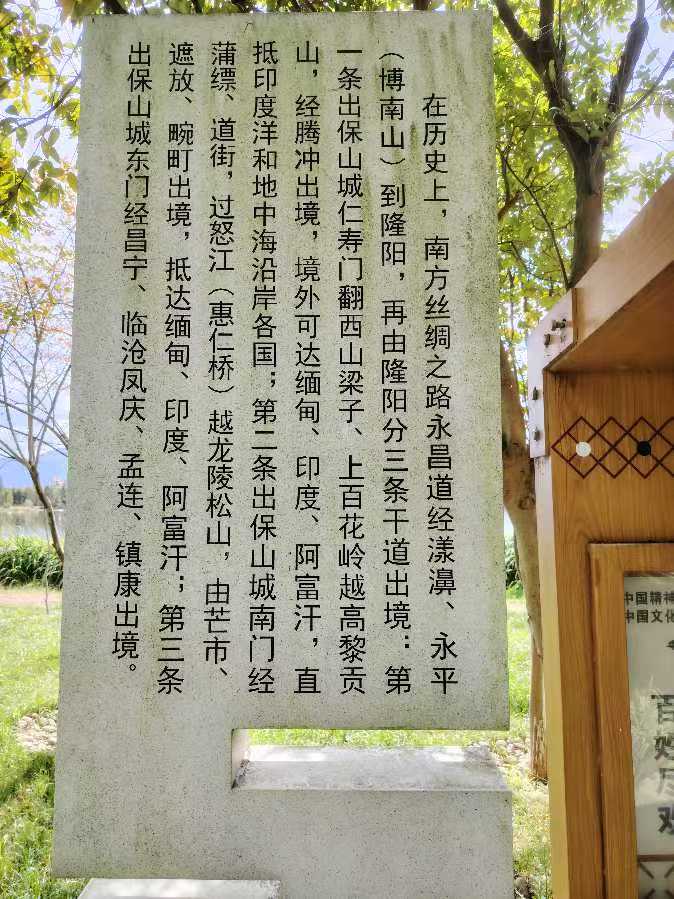 在历史上，南方丝绸之路永昌道经漾濞、永平
（博南山）到隆阳，再由隆阳分三条干道出境：第
一条出保山城仁寿门翻西山梁子、上百花岭越高黎贡
山，经腾冲出境，境外可达缅甸、印度、阿富汗，直
抵印度洋和地中海沿岸各国；第二条出保山城南门经
蒲缥、道街，过怒江（惠仁桥）越龙陵松山，由芒市、
遮放、畹町出境，抵达缅甸、印度、阿富汗；第三条
出保山城东门经昌宁、临沧凤庆、孟连、镇康出境。
中国精神
中国文化